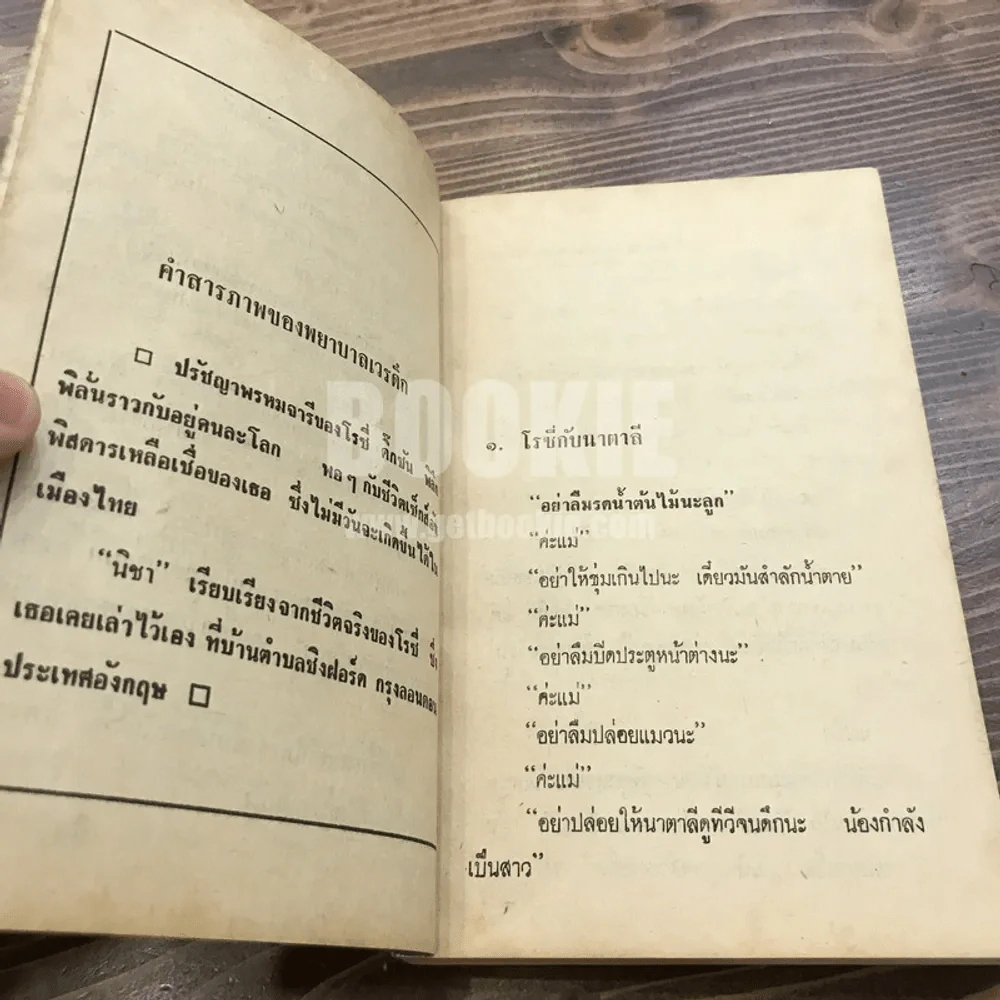 คำสารภาพของพยาบาลเวรดึก
□ ปรัชญาพรหมจารีของโรซี่ ดิ๊กซัน พิลึก
พิลั่นราวกับอยู่คนละโลก พอๆ กับชีวิตเซ็กส์อัน
พิสดารเหลือเชื่อของเธอ ซึ่งไม่มีวันจะเกิดขึ้นได้ใน
เมืองไทย
“นิชา” เรียบเรียงจากชีวิตจริงของโรซี่ ซึ่ง
เธอเคยเล่าไว้เอง ที่บ้านตำบลชิงฝอร์ด กรุงลอนดอน
ประเทศอังกฤษ □
๑. โรซี่กับนาตาลี
“อย่าลืมรดน้ำต้นไม้นะลูก”
“ค่ะแม่”
“อย่าให้ชุ่มเกินไปนะ เดี๋ยวมันสำลักน้ำตาย”
“ค่ะแม่”
“อย่าลืมปิดประตูหน้าต่างนะ”
“ค่ะแม่”
“อย่าลืมปล่อยแมวนะ”
“ค่ะแม่”
“อย่าปล่อยให้นาตาลีดูทีวีจนดึกนะ น้องกำลัง
เป็นสาว”
BOOKIE
www.getbookie.com